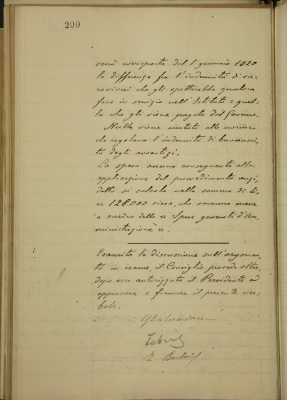 200
verrà corrisposta dal 1° gennaio 1920
la differenza fra l'indennità di ca-
roviveri che gli spetterebbe qualora
fosse in servizio nell'Istituto e quel-
la che gli viene pagata dal Governo.
Nulla viene mutato alle norme
che regolano l'indennità di buonusci-
ta degli avventizi.
La spesa annua conseguente alla
applicazione del provvedimento anzi-
detto si calcola nella somma di li-
re 128.000 circa, che saranno messe
a carico delle « Spese generali d'Am-
ministrazione ».
Esaurita la discussione sull'argomen-
to in esame, il Consiglio procede oltre,
dopo aver autorizzato il Presidente ad
approvare e firmare il presente ver-
bale.